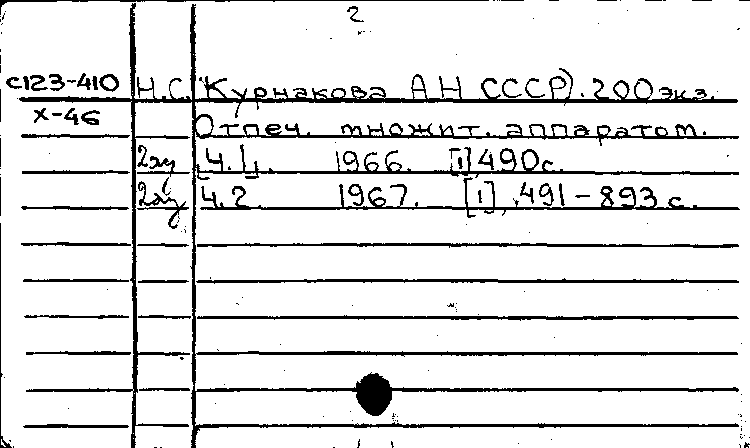 2
с123-410 Н.С. Курнакова АН СССР). 200 экз.
х-46 Отпеч. множит. аппаратом.
2эу [Ч.1]. 1966. [1], 490 с.
2эу Ч.2. 1967. [1], 491-893 с.